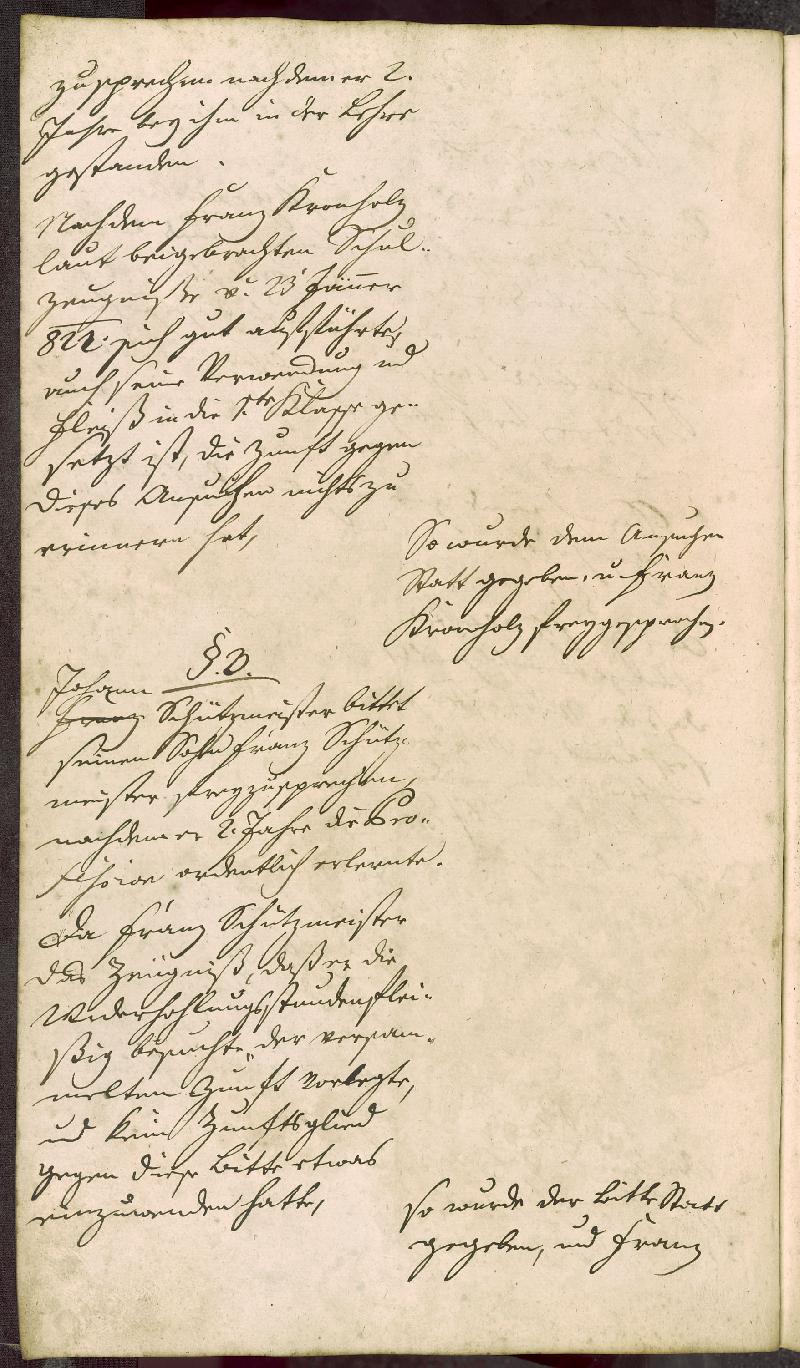 zusprechen nachdem er 2.
Jahre bey ihm in der Lehre
gestanden.
Nachdem Franz Kronholz
laut beigebrachten Schul-
zeugniße v. 23 Jänner
822. sich gut aufführte,
auch seine Verwendung ud
Fleiß in die 1te Klasse ge-
setzt ist, die Zunft gegen
dieses Ansuchen nichts zu
erinnern hat,
So wurde dem Ansuchen
Statt gegeben, u Franz
Kronholz freygesprochen.
§. 3.
Johann
Franz Schützmeister bittet
seinen Sohn Franz Schütz-
meister freyzusprechen,
nachdem er 2. Jahre die Pro-
fession ordentlich erlernte.
Da Franz Schützmeister
das Zeugniß, daß er die
Wiederhohlungsstunden flei-
ßig besuchte, der versam-
melten Zunft vorlegte,
ud kein Zunftsglied
gegen diese Bitte etwas
einzuwenden hatte,
so wurde der Bitte Statt
gegeben, ud Franz